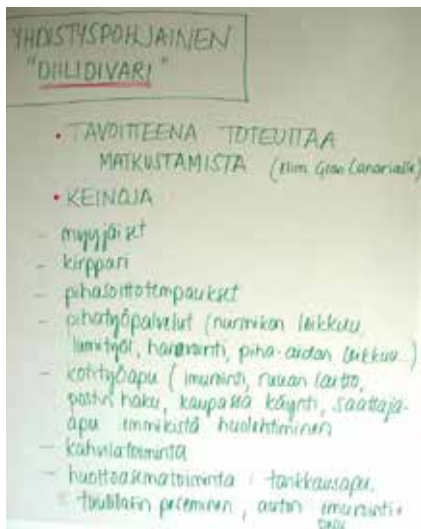 YHDISTYSPOHJAINEN
"DIILIDIVARI"
• TAVOITTEENA TOTEUTTAA
MATKUSTAMISTA (esim Gran Canarialle)
• KEINOJA
- myyjäiset
- kirppari
- pihasoittotempaukset
- pihatyöpalvelut (nurmikon leikkuu,
lumityöt, haravointi, piha-aidan leikkuu...)
- kotityöapu (imurointi, ruuan laitto,
postin haku, kaupassa käynti, saattaja-
apu lemmikistä huolehtiminen
- kahvilatoiminta
- huoltoasematoiminta: tankkausapu,
tuulilasin peseminen, auton imurointi